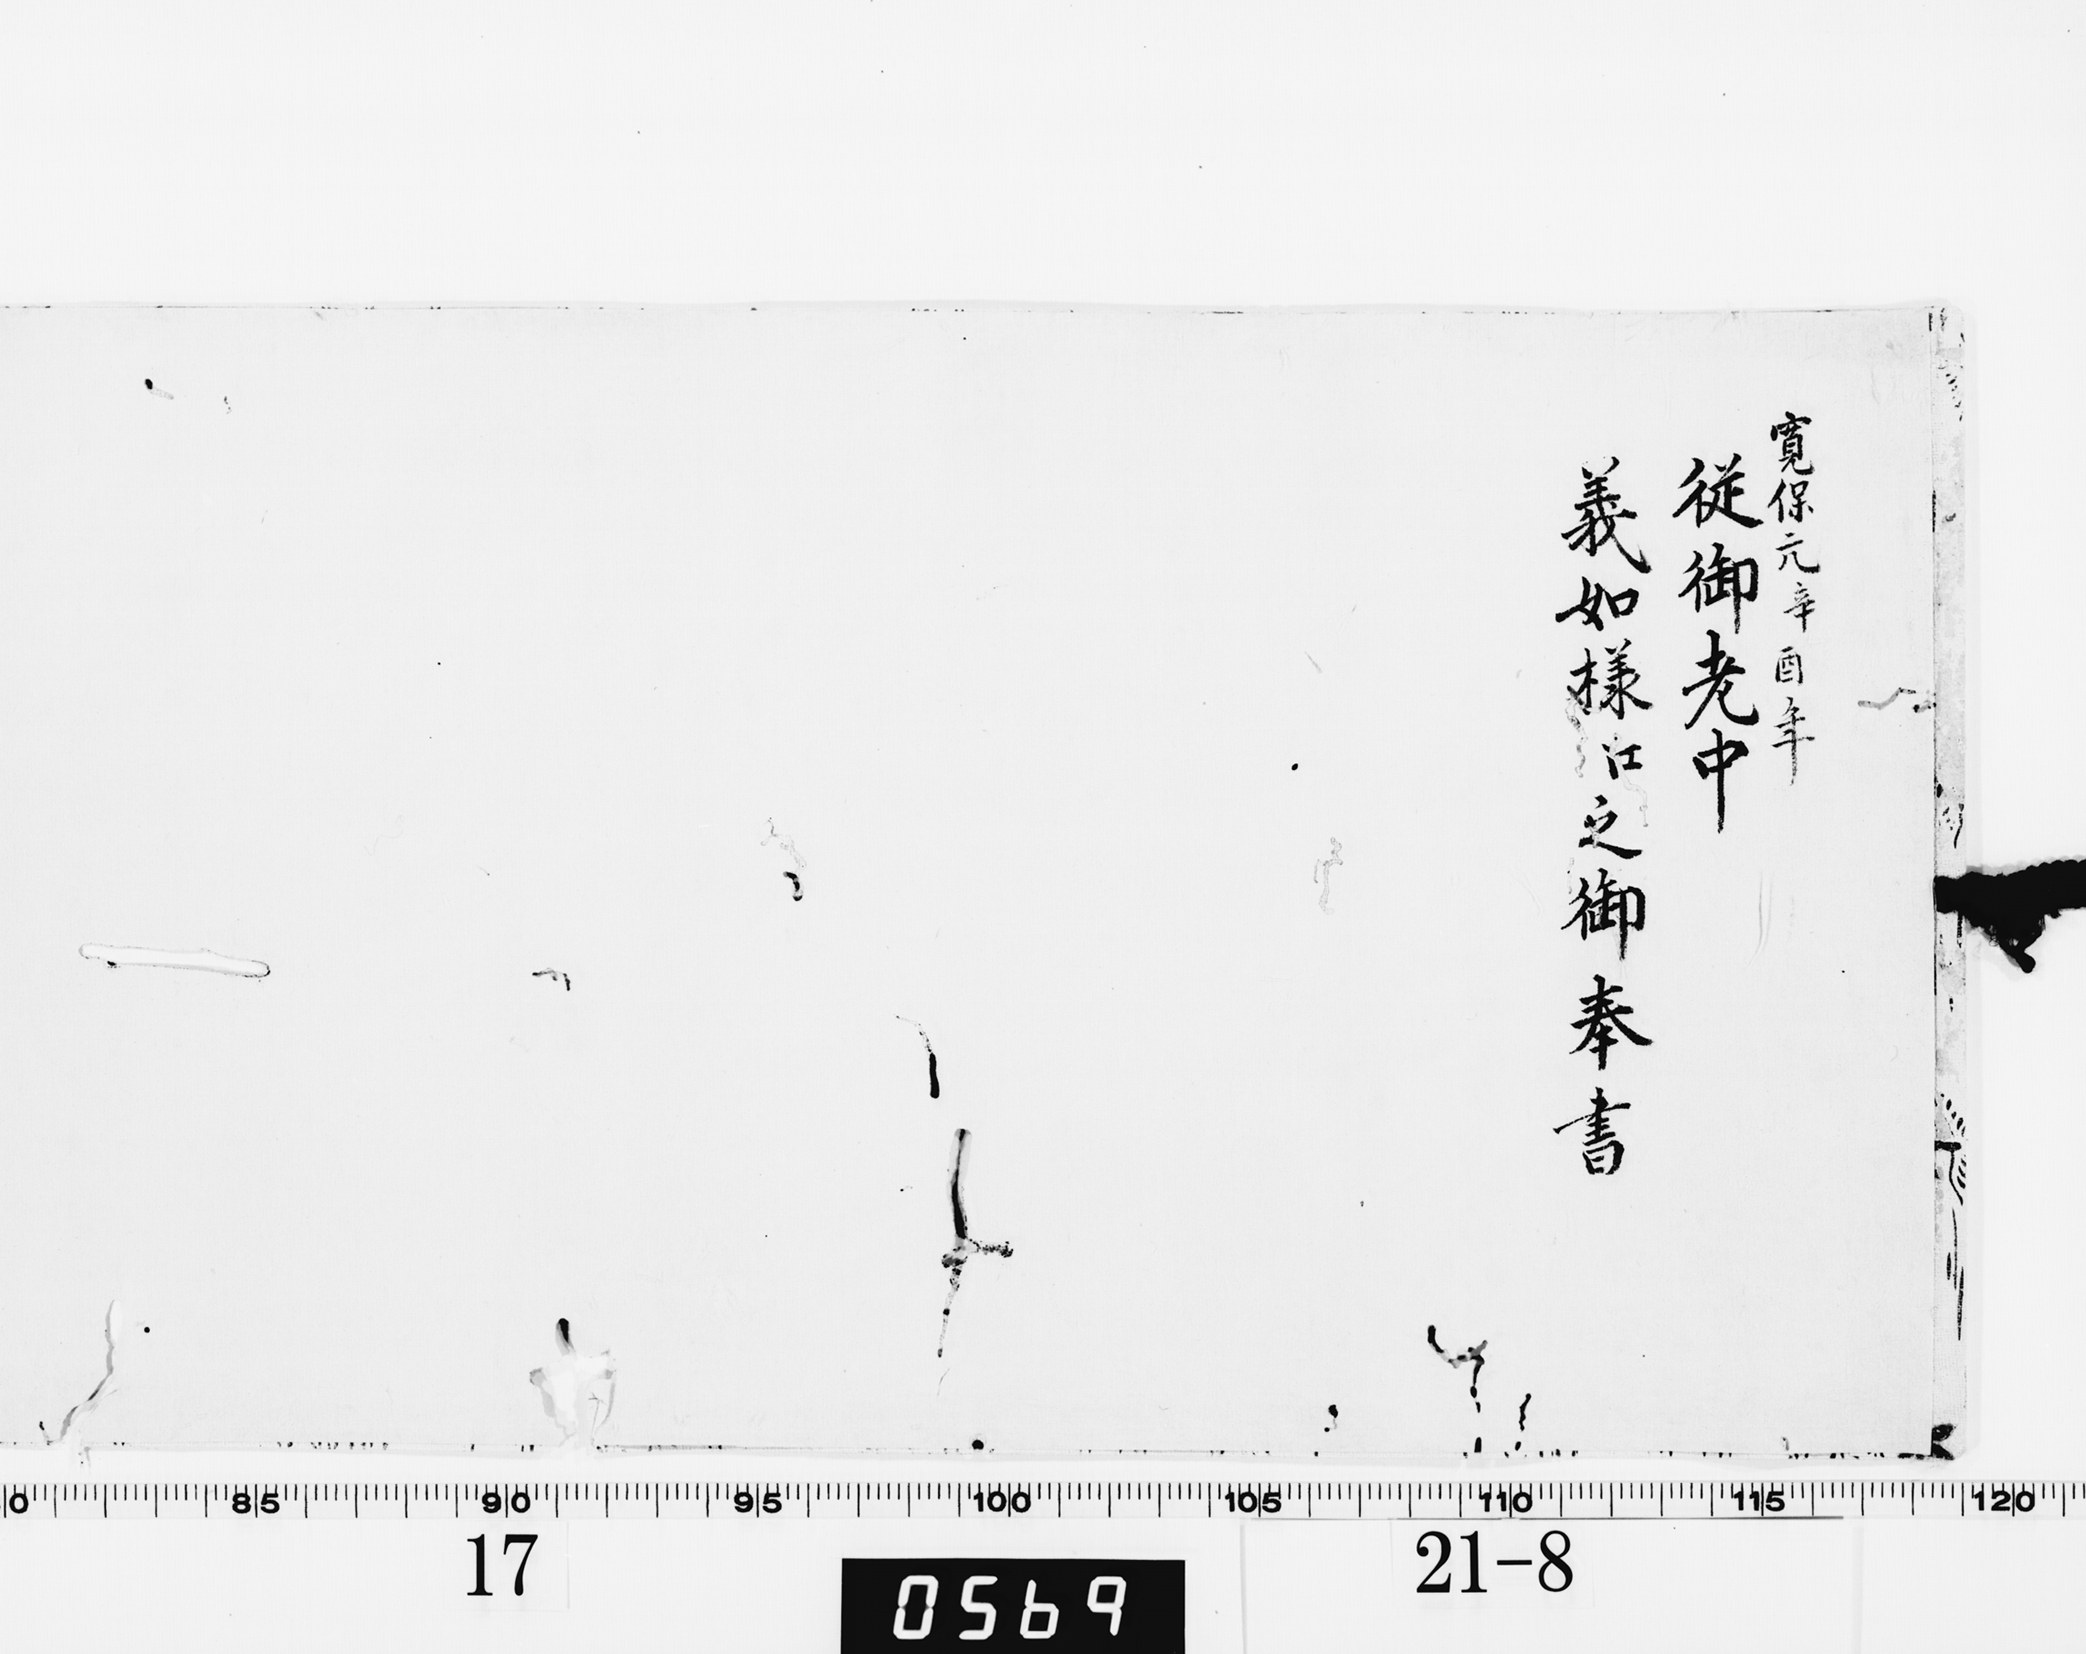 寛保元辛酉年
従御老中
義如様江之御奉書
0 85 90 95 100 105 110 115 120
17
21-8
0569